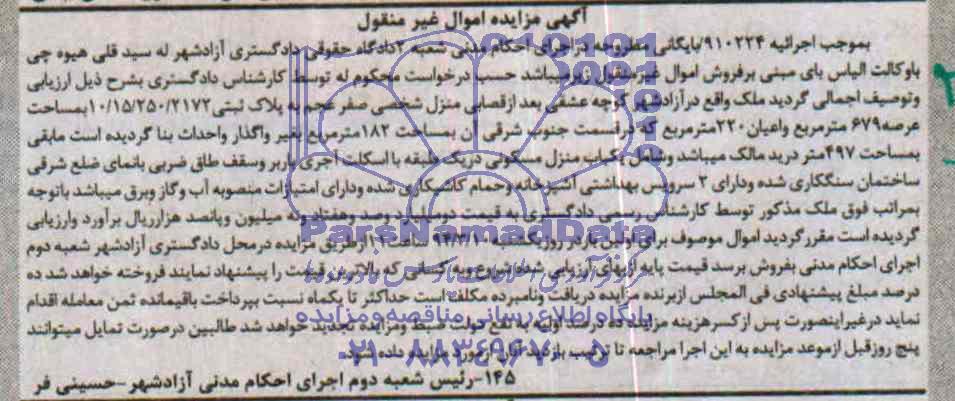 آگهی مزایده اموال غیر منقول
بموجب اجرائیه ۹۱۰۲۲۴/بایگانی مطروحه دراجرای احکام مدنی شعبه ۲دادگاه حقوقی دادگستری آزادشهر له سید قلی هیوه چی
باوکالت الیاس بای مبنی برفروش اموال غیرمنقول زیرمیباشد حسب درخواست محکوم له توسط کارشناس دادگستری بشرح ذیل ارزیابی
وتوصیف اجمالی گردید ملک واقع درآزادشهر کوچه عشقی بعد ازقصابی منزل شخصی صفر عجم به پلاک ثبتی ۱۰/۱۵/۲۵۰/۲۱۷۲بمساحت
عرصه۶۷۹ مترمربع واعیان۲۲۰مترمربع که درقسمت جنوب شرقی آن بمساحت ۱۸۲مترمربع بغیر واگذار واحداث بنا گردیده است مابقی
بمساحت ۴۹۷متر درید مالک میباشد وشامل یکباب منزل مسکونی دریک طبقه با اسکلت آجری باربر وسقف طاق ضربی بانمای ضلع شرقی
ساختمان سنگکاری شده ودارای ۲ سرویس بهداشتی آشپزخانه وحمام کاشیکاری شده ودارای امتیازات منصوبه آب وگاز وبرق میباشد باتوجه
بمراتب فوق ملک مذکور توسط کارشناس رسمی دادگستری به قیمت دومیلیارد وصد وهفتاد ونه میلیون وپانصد هزارریال برآورد وارزیابی
گردیده است مقررگردید اموال موصوف برای اولین بار در روز یکشنبه ساعت ازطریق مزایده درمحل دادگستری آزادشهر شعبه دوم
اجرای احکام مدنی بفروش برسد قیمت پایه ازبهای ارزیابی شده شروع وبه کسانی که بالاترین قیمت را پیشنهاد نمایند فروخته خواهد شد ده
درصد مبلغ پیشنهادی فی المجلس ازبرنده مزایده دریافت ونامبرده مکلف است حداکثر تا یکماه نسبت بپرداخت باقیمانده ثمن معامله اقدام
نماید درغیراینصورت پس ازکسرهزینه مزایده ده درصد اولیه به نفع دولت ضبط ومزایده تجدید خواهد شد طالبین درصورت تمایل میتوانند
پنج روزقبل ازموعد مزایده به این اجرا مراجعه تا ترتیب بازدید آنان ازمورد مزایده داده شود.
۱۴۵-رئیس شعبه دوم اجرای احکام مدنی آزادشهر -حسینی فر
ParsNamadData
پایگاه اطلاع رسانی مناقصه و مزایده
۰۲۱-۸۸۳۴۹۶۷۰-۵